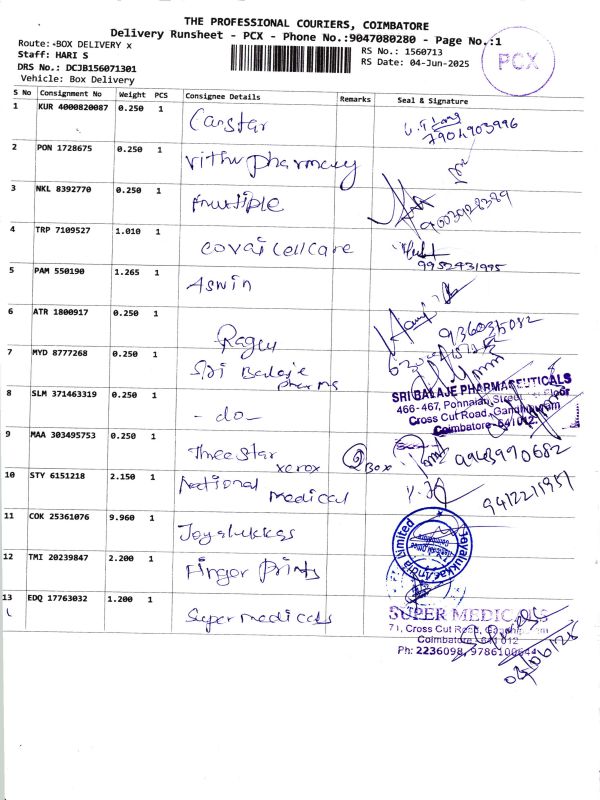 THE PROFESSIONAL COURIERS, COIMBATORE
Delivery Runsheet - PCX - Phone No.:9047080280 - Page No.:1
Route: BOX DELIVERY x
Staff: HARI S
DRS No.: DCJB156071301
Vehicle: Box Delivery
RS No.: 1560713
RS Date: 04-Jun-2025
PCX
S No Consignment No Weight PCS Consignee Details Remarks Seal & Signature
1 KUR 4000820087 0.250 1 Canstar 7904903996
2 PON 1728675 0.250 1 Vithu pharmacy
3 NKL 8392770 0.250 1 9003928389
4 TRP 7109527 1.010 1 covai cellcare 9952431995
5 PAM 550190 1.265 1 Aswin
6 ATR 1800917 0.250 1 Ragu 936035082
7 MYD 8777268 0.250 1 Sri Balaje pharms
SRI BALAJE PHARMASEUTICALS
466-467, Ponnaiah Street, Floor
Cross Cut Road, Gandhipuram
Coimbatore- 641 012.
8 SLM 371463319 0.250 1 - do -
9 MAA 303495753 0.250 1 Three Star xerox 2 Box 9943990682
10 STY 6151218 2.150 1 National medical 9412211957
11 COK 25361076 9.960 1 Joyalukkas
Joyalukkas India Limited
12 TMI 20239847 2.200 1 Finger prints
13 EDQ 17763032 1.200 1 Super medicals
SUPER MEDICALS
71, Cross Cut Road,
Coimbatore - 641 012
Ph: 2236098, 9786100644
04/06/25